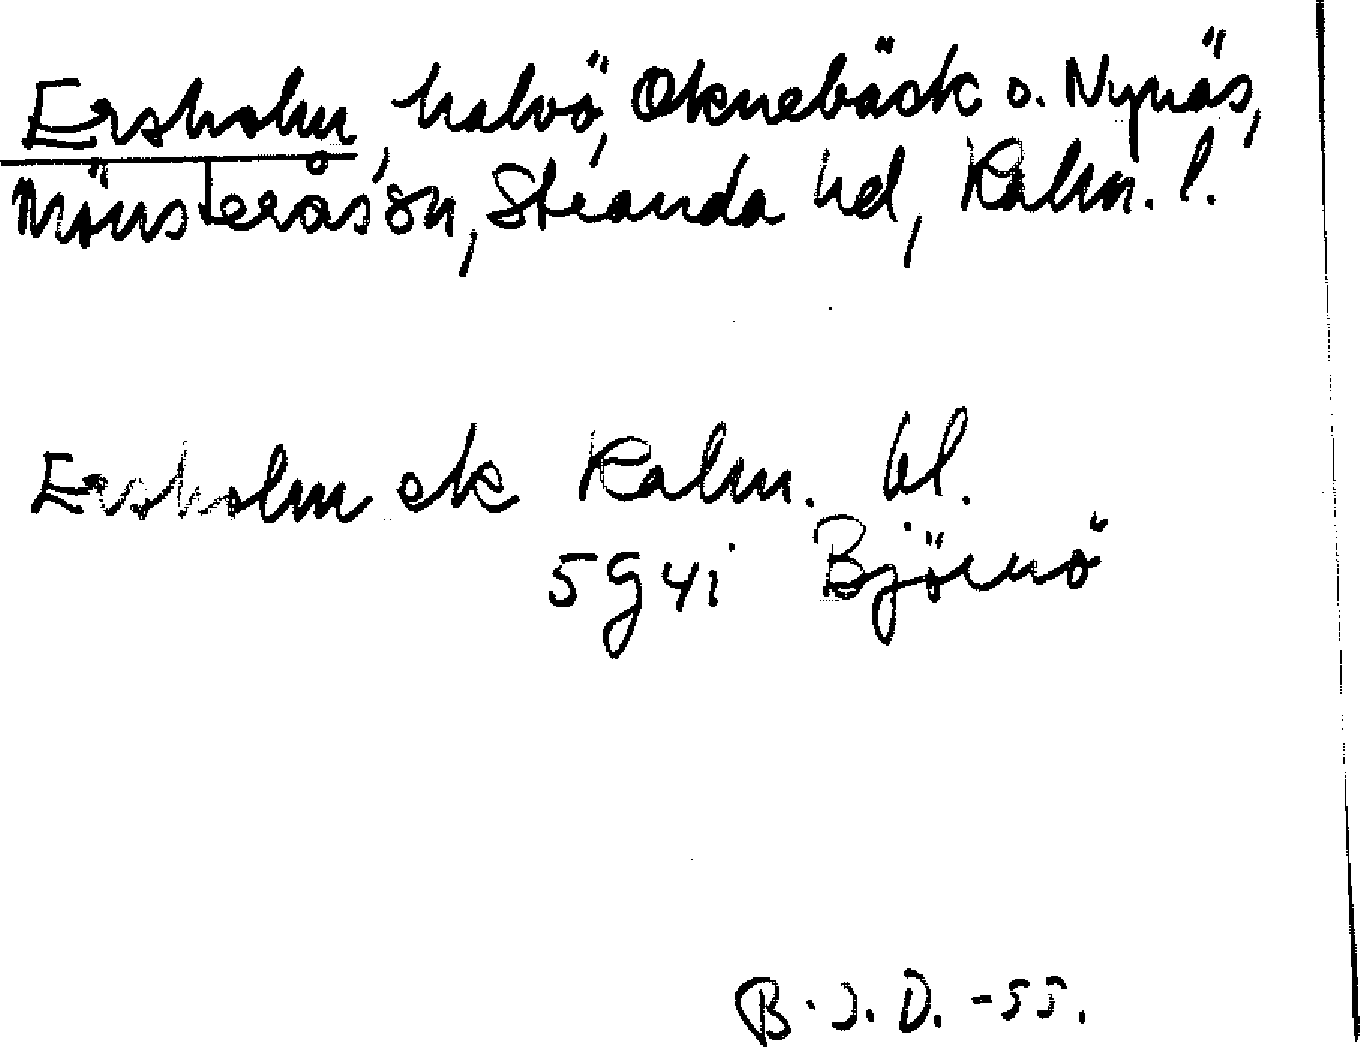 Ersholm, halvö, Oknebäck o. Nynäs,
Mönsterås sn, Stranda hd, Kalm. l.
Ersholm ek Kalm. bl.
5 G 4i Björnö
B.J.D. -55.